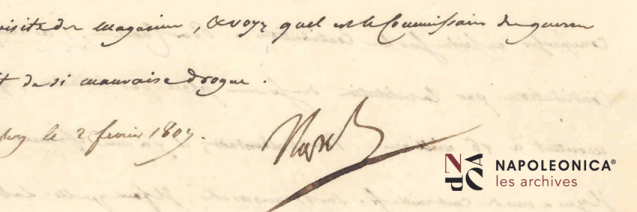 visite des magasins, et voyez quel est le Commissaire des guerres
de si mauvaise drogue.
le 2 fevrier 1807.
Nap
NAPOLEONICA®
les archives